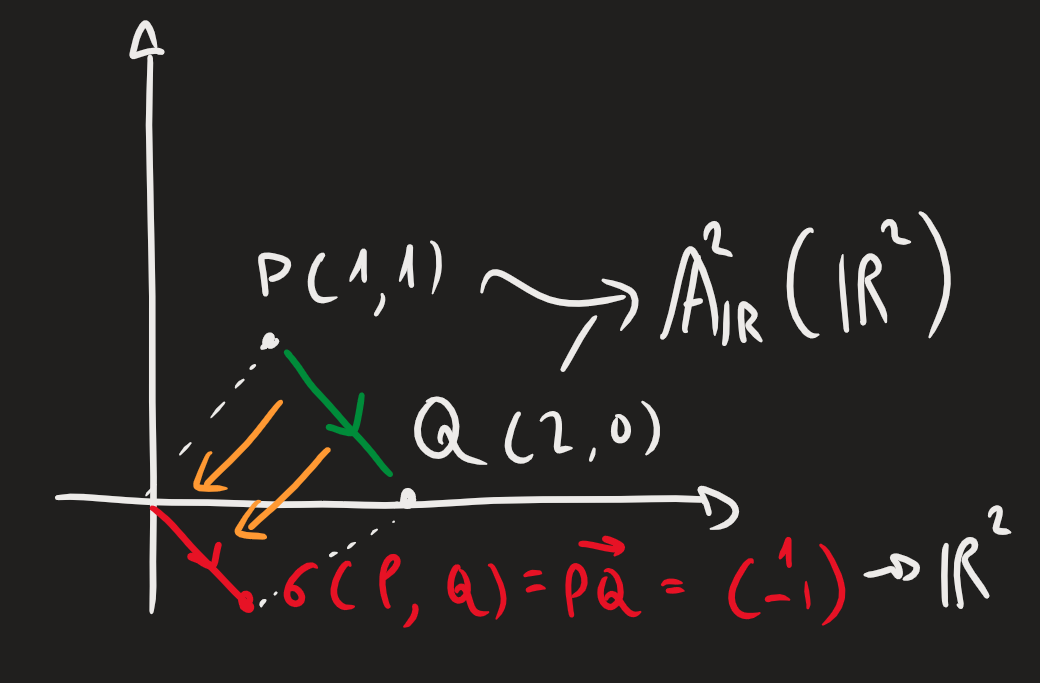 P(1,1) → A²_ℝ (ℝ²)
Q(2,0)
σ(P,Q) = P⃗Q⃗ = (1 -1) → ℝ²